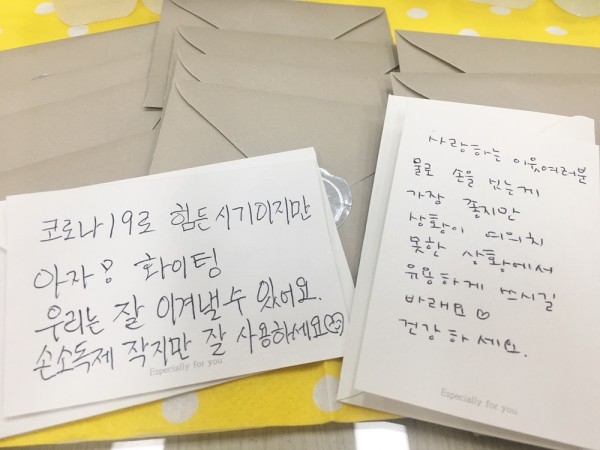 코로나19로 힘든 시기이지만
아자! 화이팅
우리는 잘 이겨낼 수 있어요.
손소독제 작지만 잘 사용하세요♡
Especially for you
사랑하는 이웃여러분
물로 손을 씻는게
가장 좋지만
상황이 여의치
못한 상황에서
유용하게 쓰시길
바래요♡
건강하세요.
Especially for you